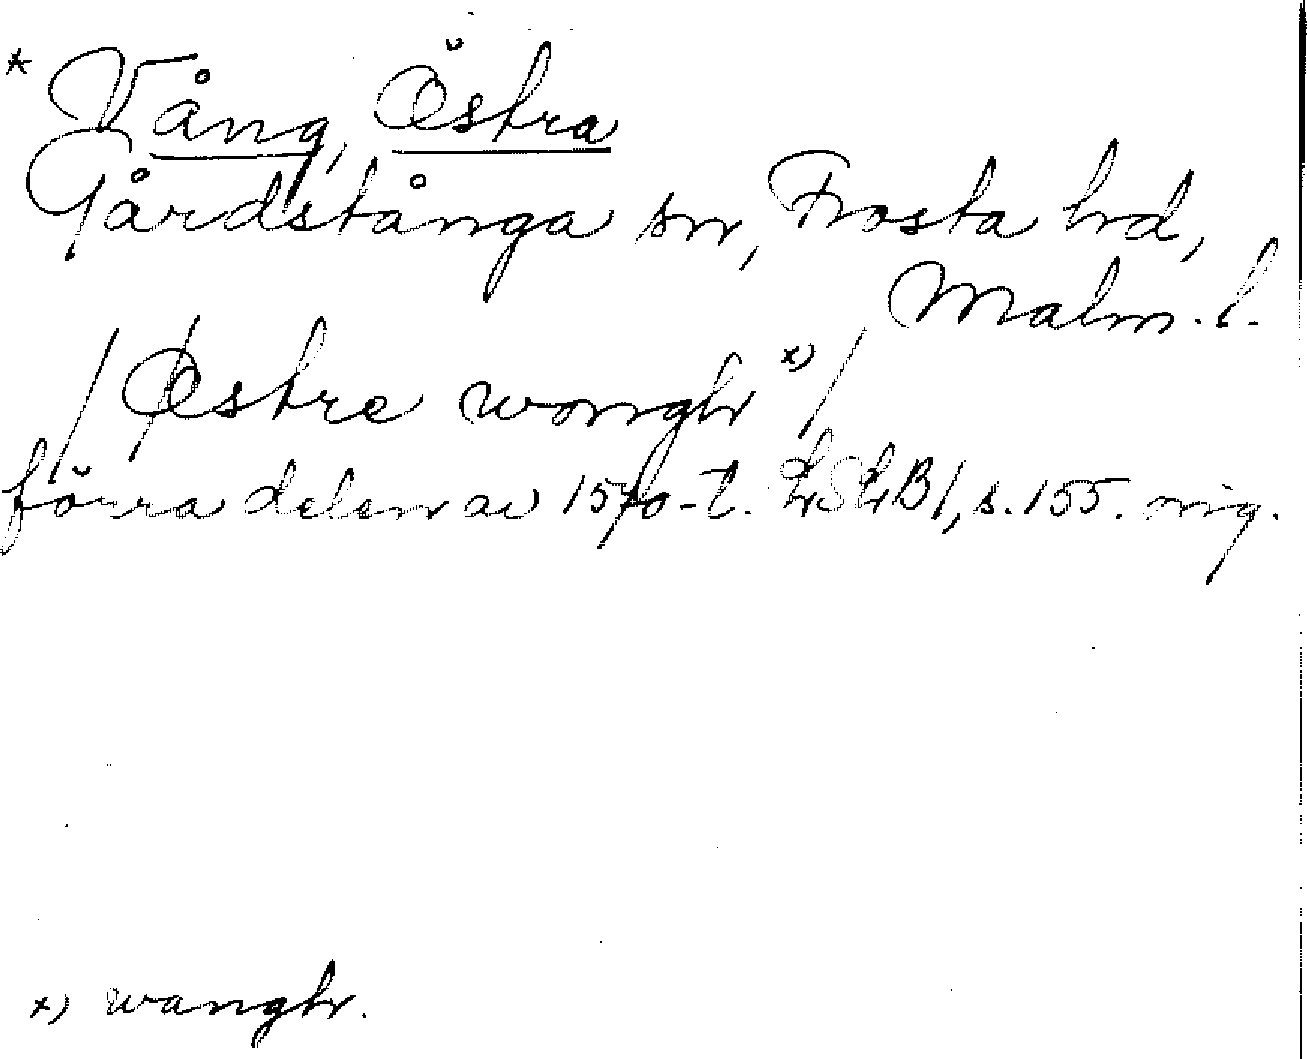 * Vång, Östra
Gårdstånga sn, Frosta hd,
Malm. l.
/Østre wongh x)/
förra delen av 1570-t. LSLB 1, s. 155. orig.
x) wangh.